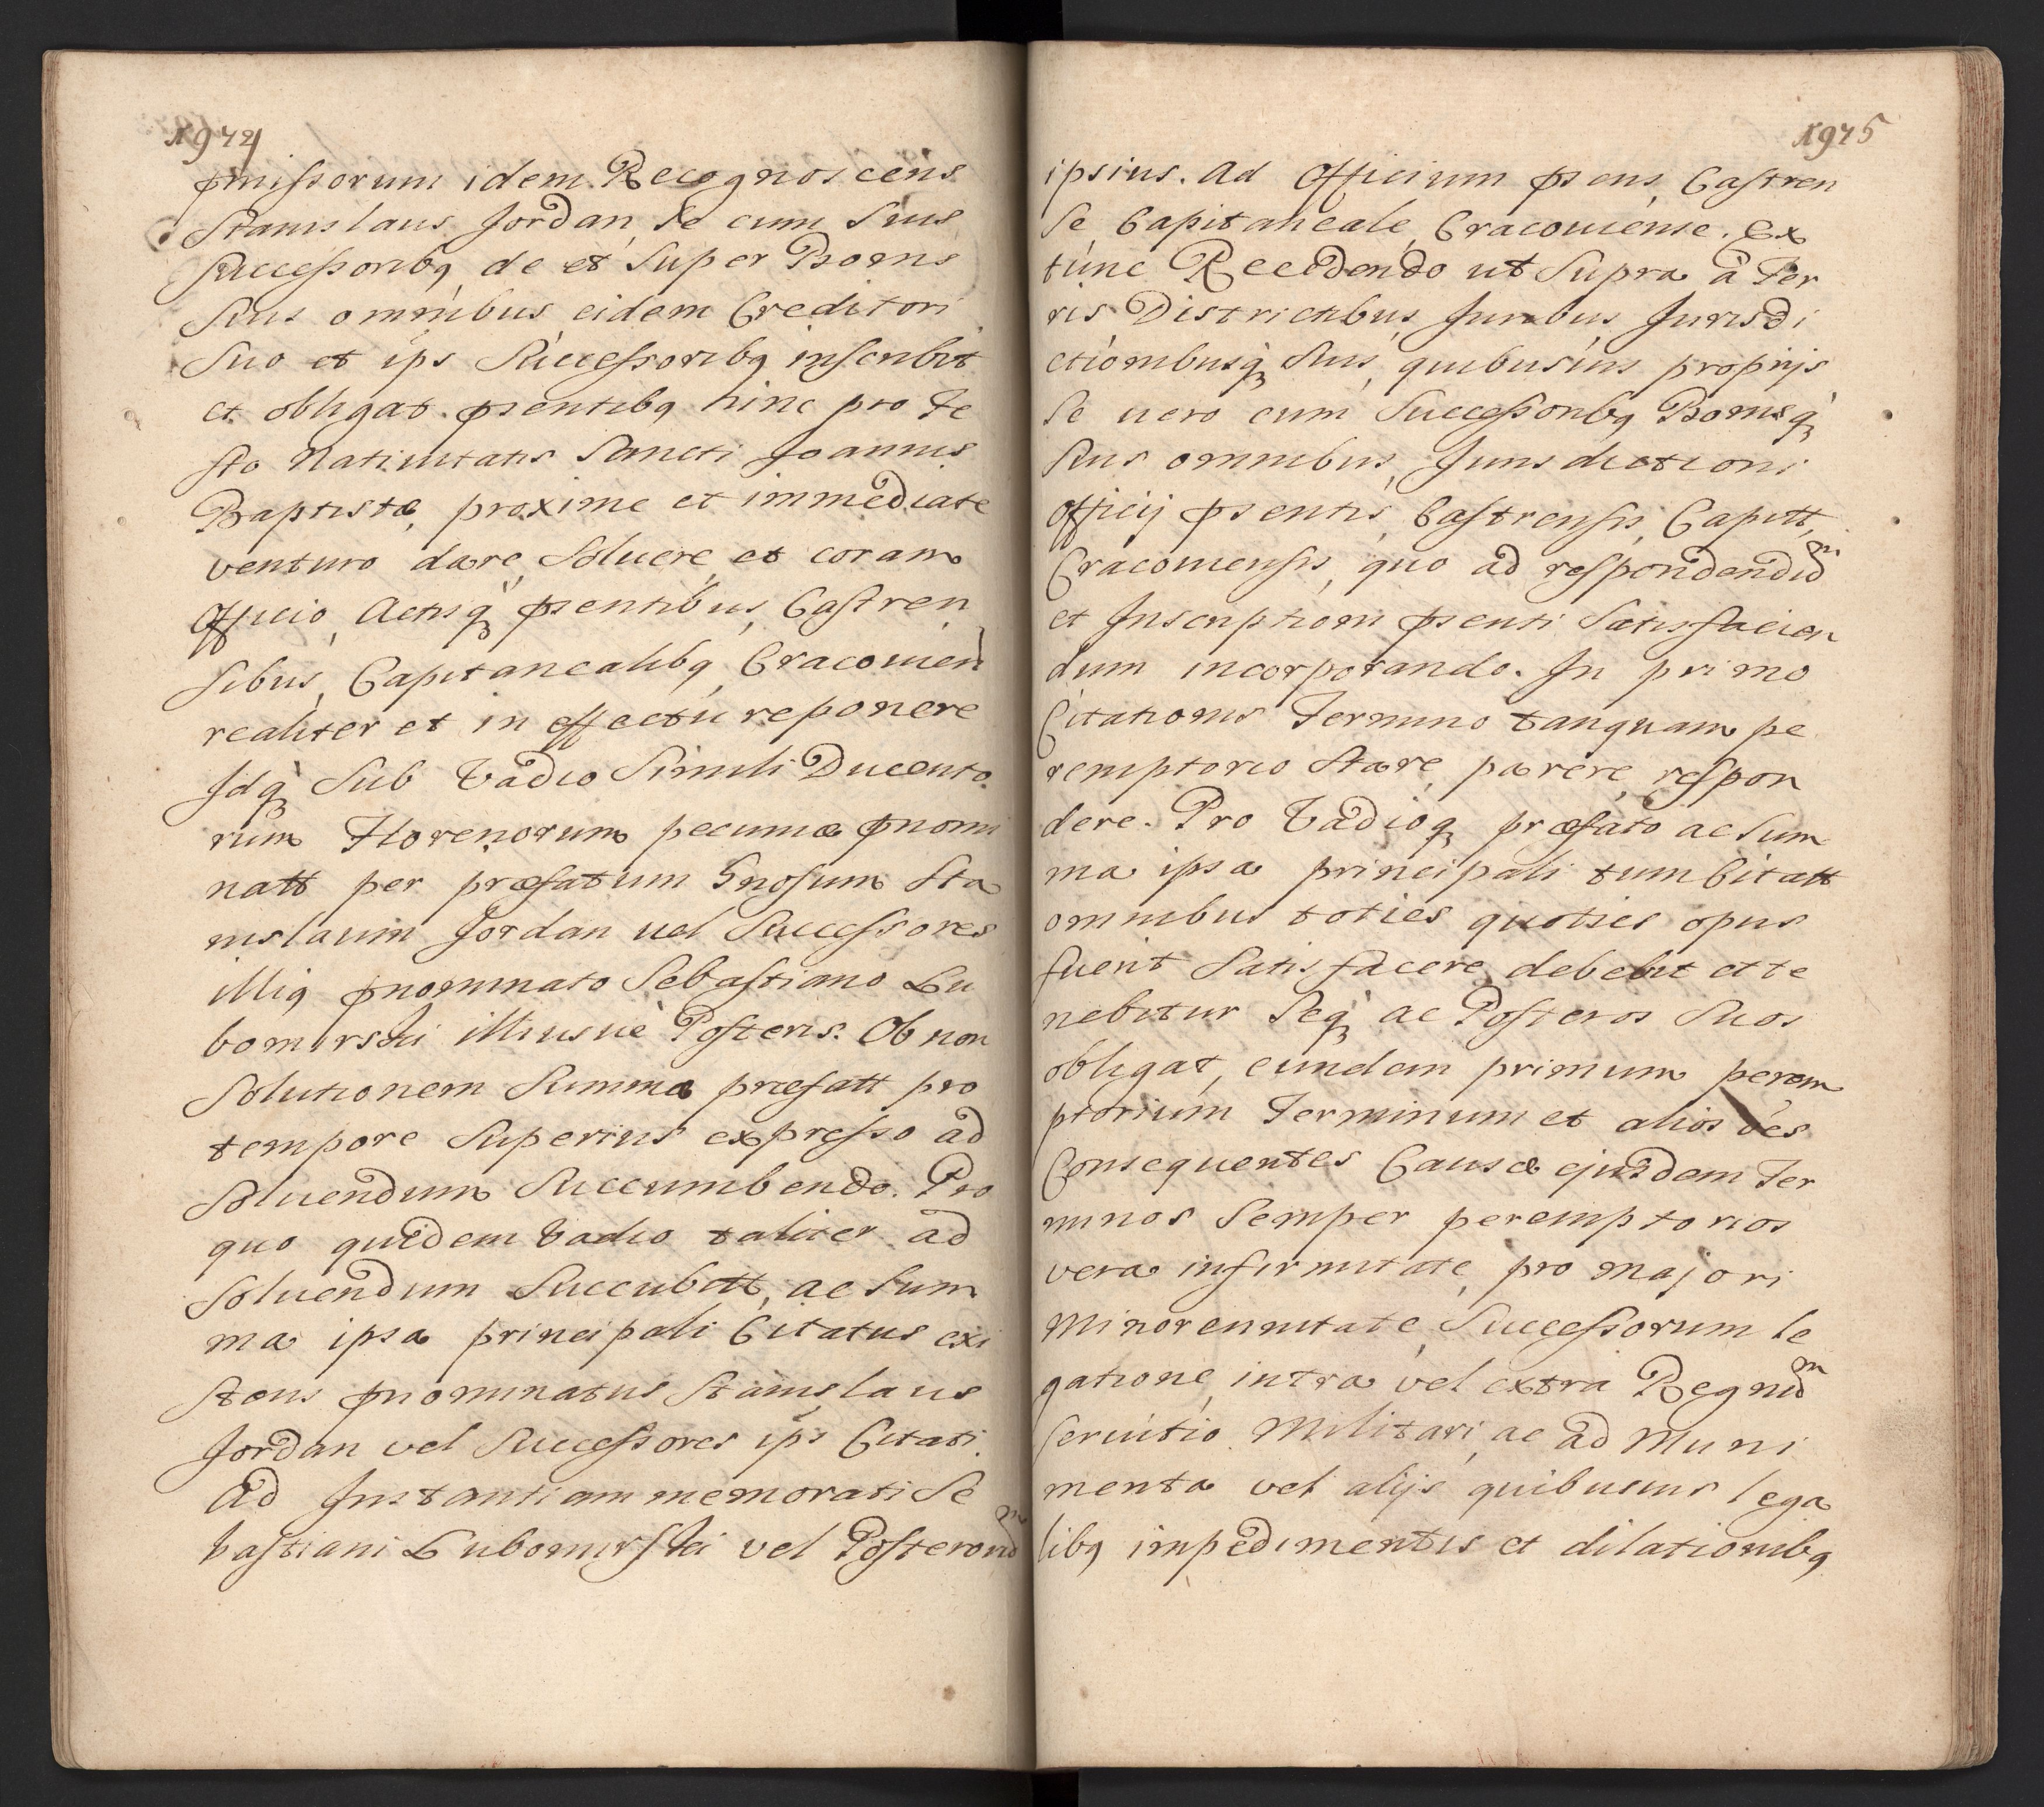 1974
pmissorum idem Recognoscens
Stanislaus Jordan, se cum Suis
Successoribq de et Super Bonis
Suis omnibus eidem Creditori
Suo et ips Successoribq inscribit
et obligat. psentibq hinc pro Fe
sto Nativitatis Sancti Joannis
Baptistæ, proxime et immediate
venturo dare, Solvere, et coram
Officio, Actisq psentibus, Castren
sibus, Capitanealibq Cracovien
realiter et in effectu reponere
Idq Sub Vadio Simili Ducento
rum Florenorum pecuniæ pnomi
natt per præfatum Gnosum Sta
nislaum Jordan vel Successores
illiq pnominato Sebastiano Lu
bomirski illiusvè Posteris. Ob non
Solutionem Summæ præfatt pro
tempore Superius expresso ad
Solvendum Succumbendo. Pro
quo quidem Vadio taliter ad
Solvendum Succubitt, ac Sum
ma ipsa principali Citatus exi
stens pnominatus Stanislaus
Jordan vel Successores ips Citati
Ad Instantiam memorati Se
bastiani Lubomirski vel Posterorum
1975
ipsius. Ad Officium psens Castren
se Capitaneale, Cracoviense. Ex
tunc Recedendo ut Supra à Ter
ris Districtibus Juribus Jurisdi
ctionibusq Suis, quibusvis proprijs
Se vero cum Successoribq Bonisq
Suis omnibus, Jurisdictioni
Officij psentis, Castrensis, Capitt,
Cracoviensis, quo ad respondendum
et Inscriptioni psenti Satisfacien
dum incorporando. In primo
Citationis Termino tanquam pe
remptorio Stare, parere, respon
dere. Pro Vadioq præfato ac Sum
ma ipsa principali tum Citatt
omnibus toties quoties opus
fuerit Satisfacere debebit et te
nebitur Seq ac Posteros Suos
obligat, eundem primum perem
ptorium Terminum et alios oes
Consequentes Causæ ejusdem Ter
minos Semper peremptorios
vera infirmitate, pro majori
Minorennitate, Successorum le
gatione, intra vel extra Regnum
servitio Militari, ac ad Muni
menta vel alijs quibusvis lega
libq impedimentis et dilationibq